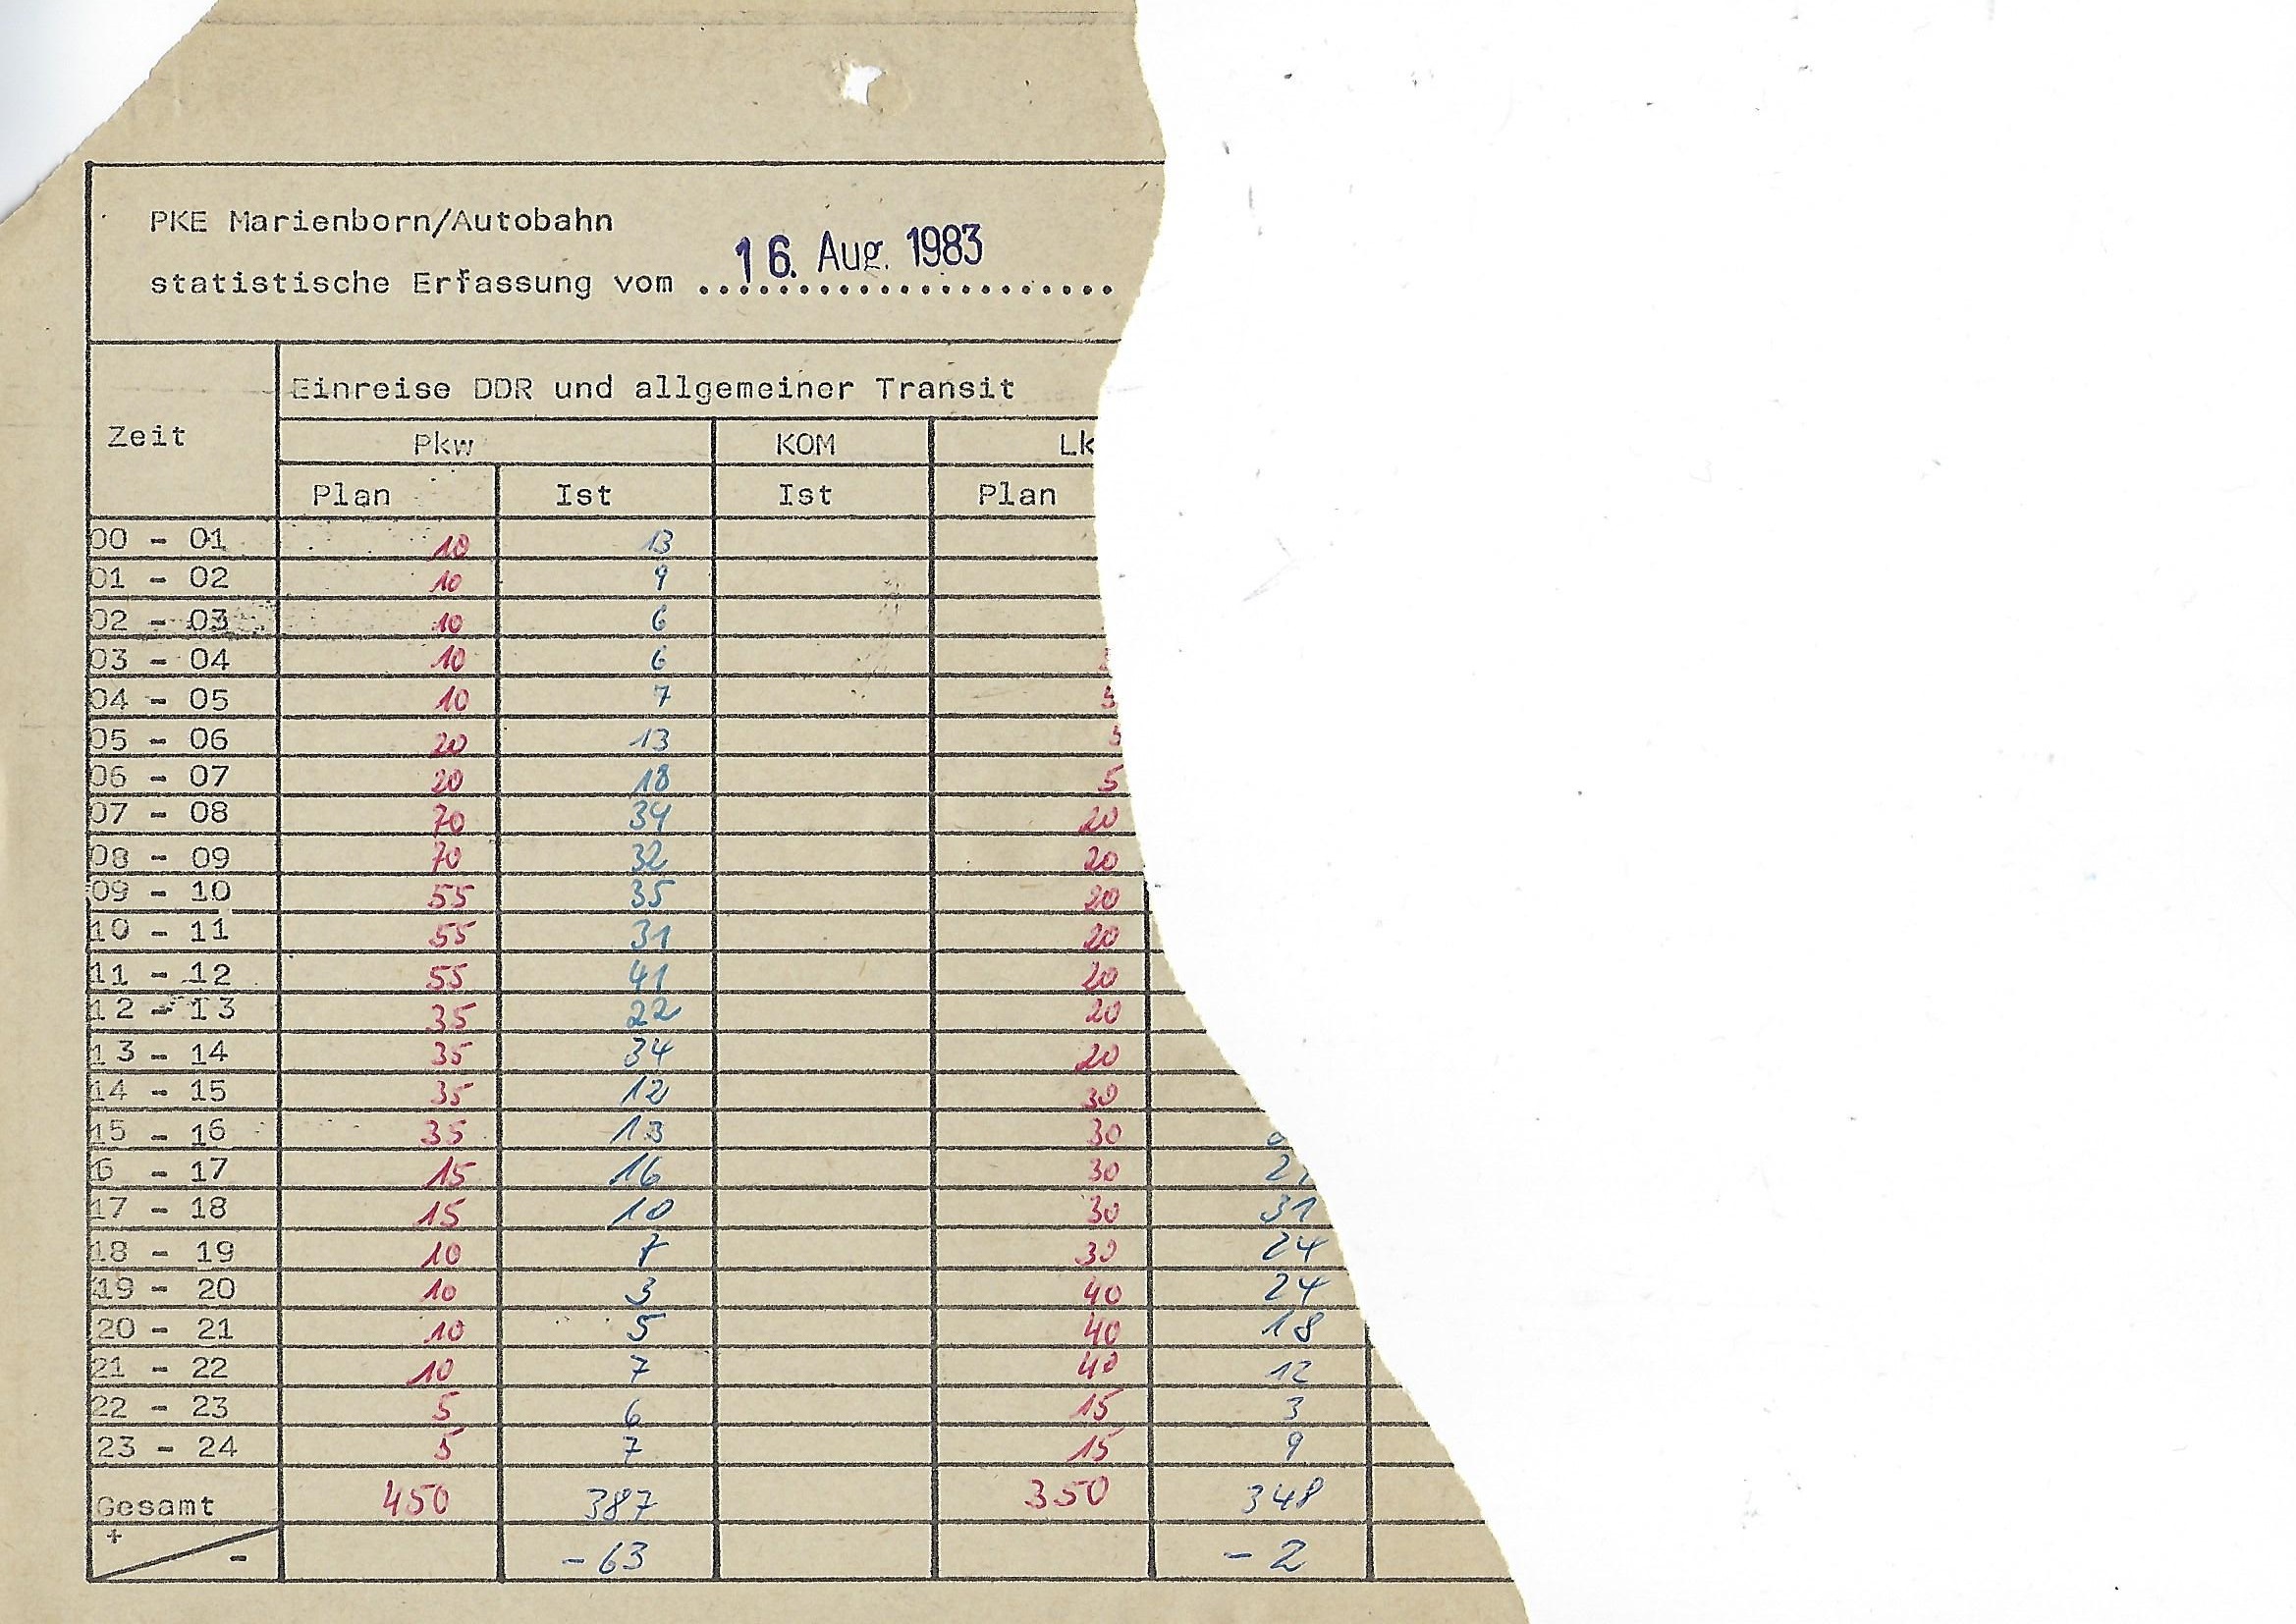 PKE Marienborn/Autobahn
16. Aug. 1983
statistische Erfassung vom ......................
Einreise DDR und allgemeiner Transit
Zeit
Pkw KOM
Plan Ist Ist Plan
00 - 01 10 13
01 - 02 10 9
02 - 03 10 6
03 - 04 10 6
04 - 05 10 7 5
05 - 06 20 13 5
06 - 07 20 18 5
07 - 08 70 34 20
08 - 09 70 32 20
09 - 10 55 35 20
10 - 11 55 31 20
11 - 12 55 41 20
12 - 13 35 22 20
13 - 14 35 34 20
14 - 15 35 12 30
15 - 16 35 13 30
6 - 17 15 16 30
17 - 18 15 10 30 31
18 - 19 10 7 30 24
19 - 20 10 3 40 24
20 - 21 10 5 40 18
21 - 22 10 7 40 12
22 - 23 5 6 15 3
23 - 24 5 7 15 9
Gesamt 450 387 350 348
+
- -63 -2